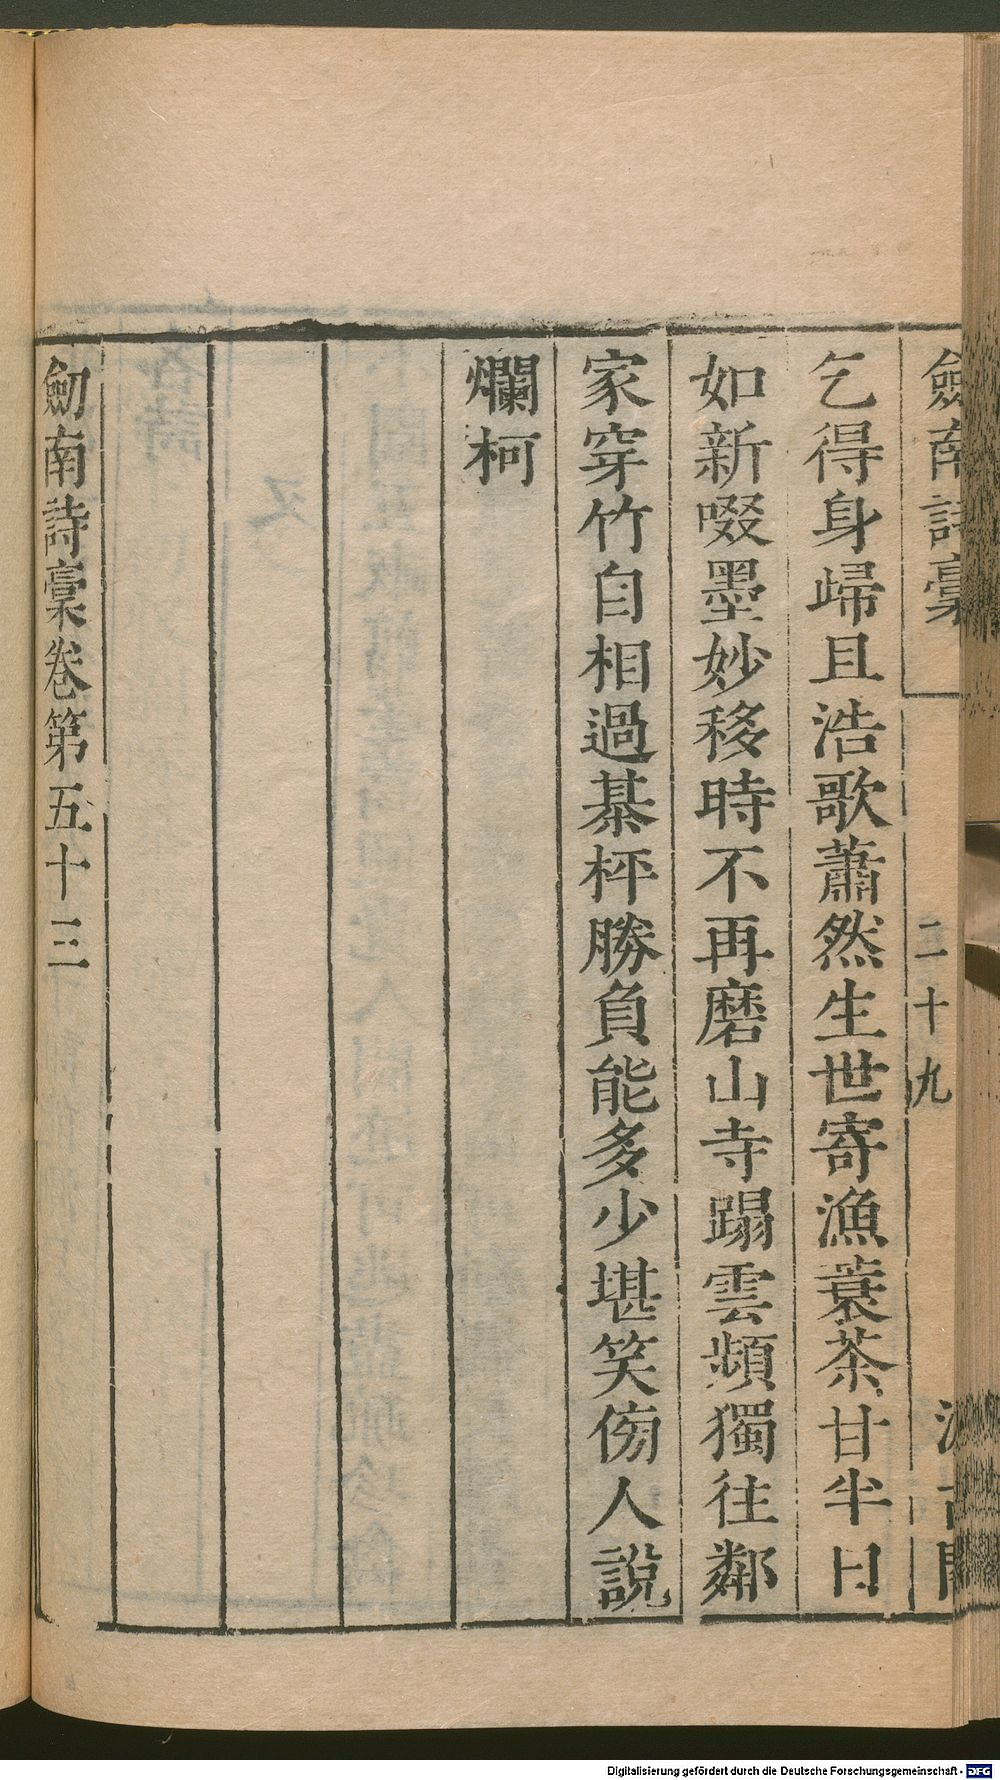 劍南詩稾
二十九
汲古閣
乞得身歸且浩歌蕭然生世寄漁蓑茶甘半日
如新啜墨妙移時不再磨山寺蹋雲頻獨往鄰
家穿竹自相過棊枰勝負能多少堪笑傍人說
爛柯
劎南詩稾卷第五十三
Digitalisierung gefördert durch die Deutsche Forschungsgemeinschaft - DFG